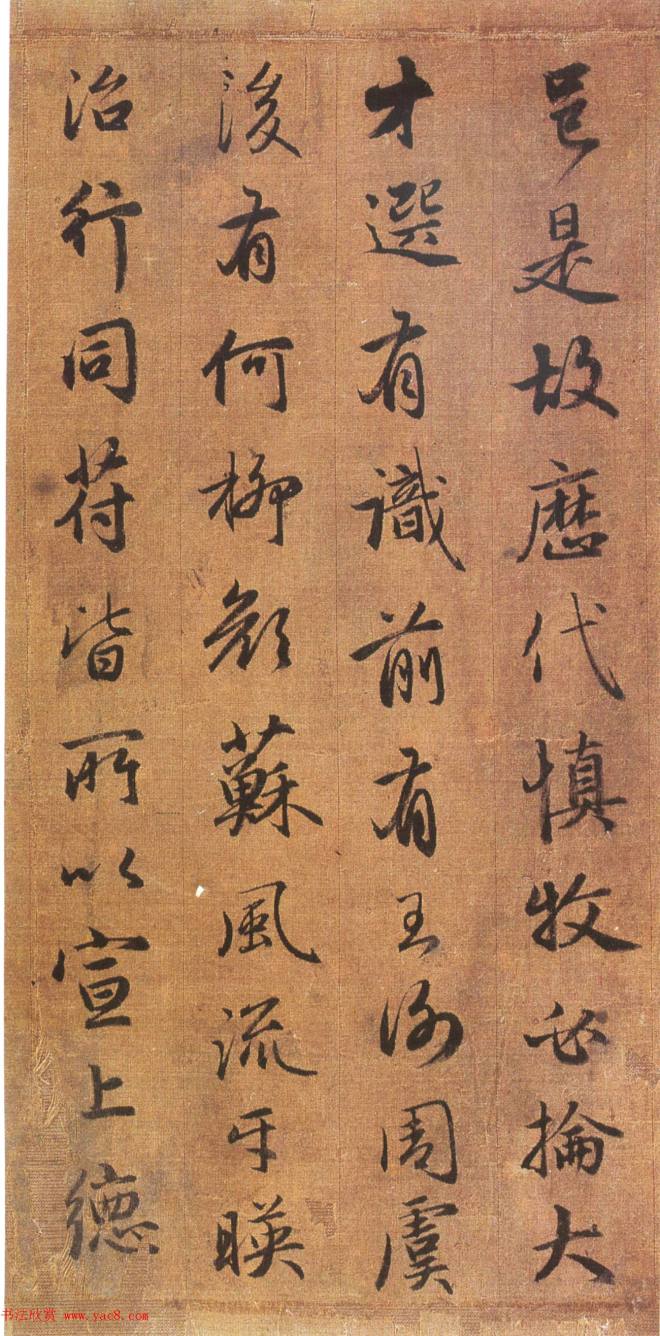 邑是故歷代慎牧必掄大
才選有識前有王謝周虞
後有何柳顏蘇風流互映
治行同符皆所以宣上德
书法欣赏 www.yac8.com